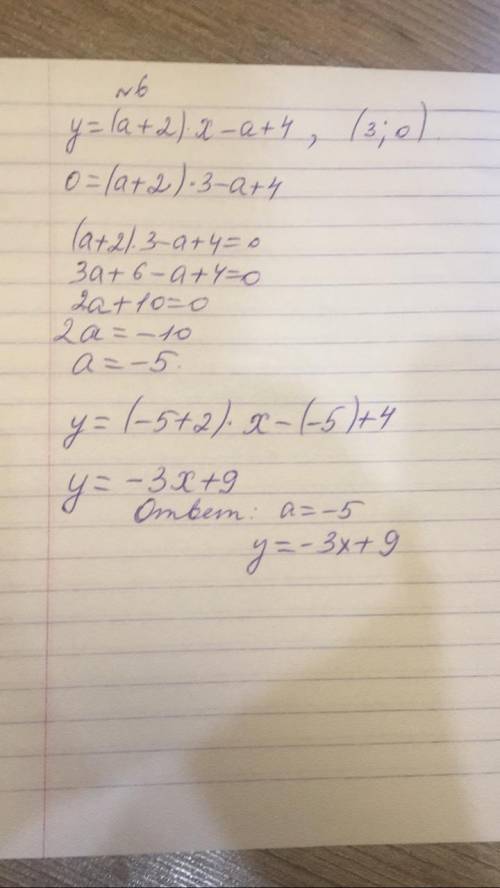 №6
y=(a+2)·x-a+4, (3;0).
0=(a+2)·3-a+4
(a+2)·3-a+4=0
3a+6-a+4=0
2a+10=0
2a=-10
a=-5.
y=(-5+2)·x-(-5)+4
y=-3x+9
Ответ: a=-5
y=-3x+9